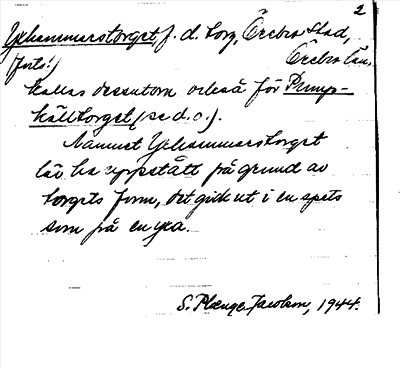 2
Yxhammarstorget, f. d. torg, Örebro stad,
(forts.) Örebro län.
kallas dessutom också för Pump-
källtorget (se d.o.).
Namnet Yxhammarstorget
lär ha uppstått på grund av
torgets form, det gick ut i en spets
som på en yxa.
S. Plænge Jacobson, 1944.